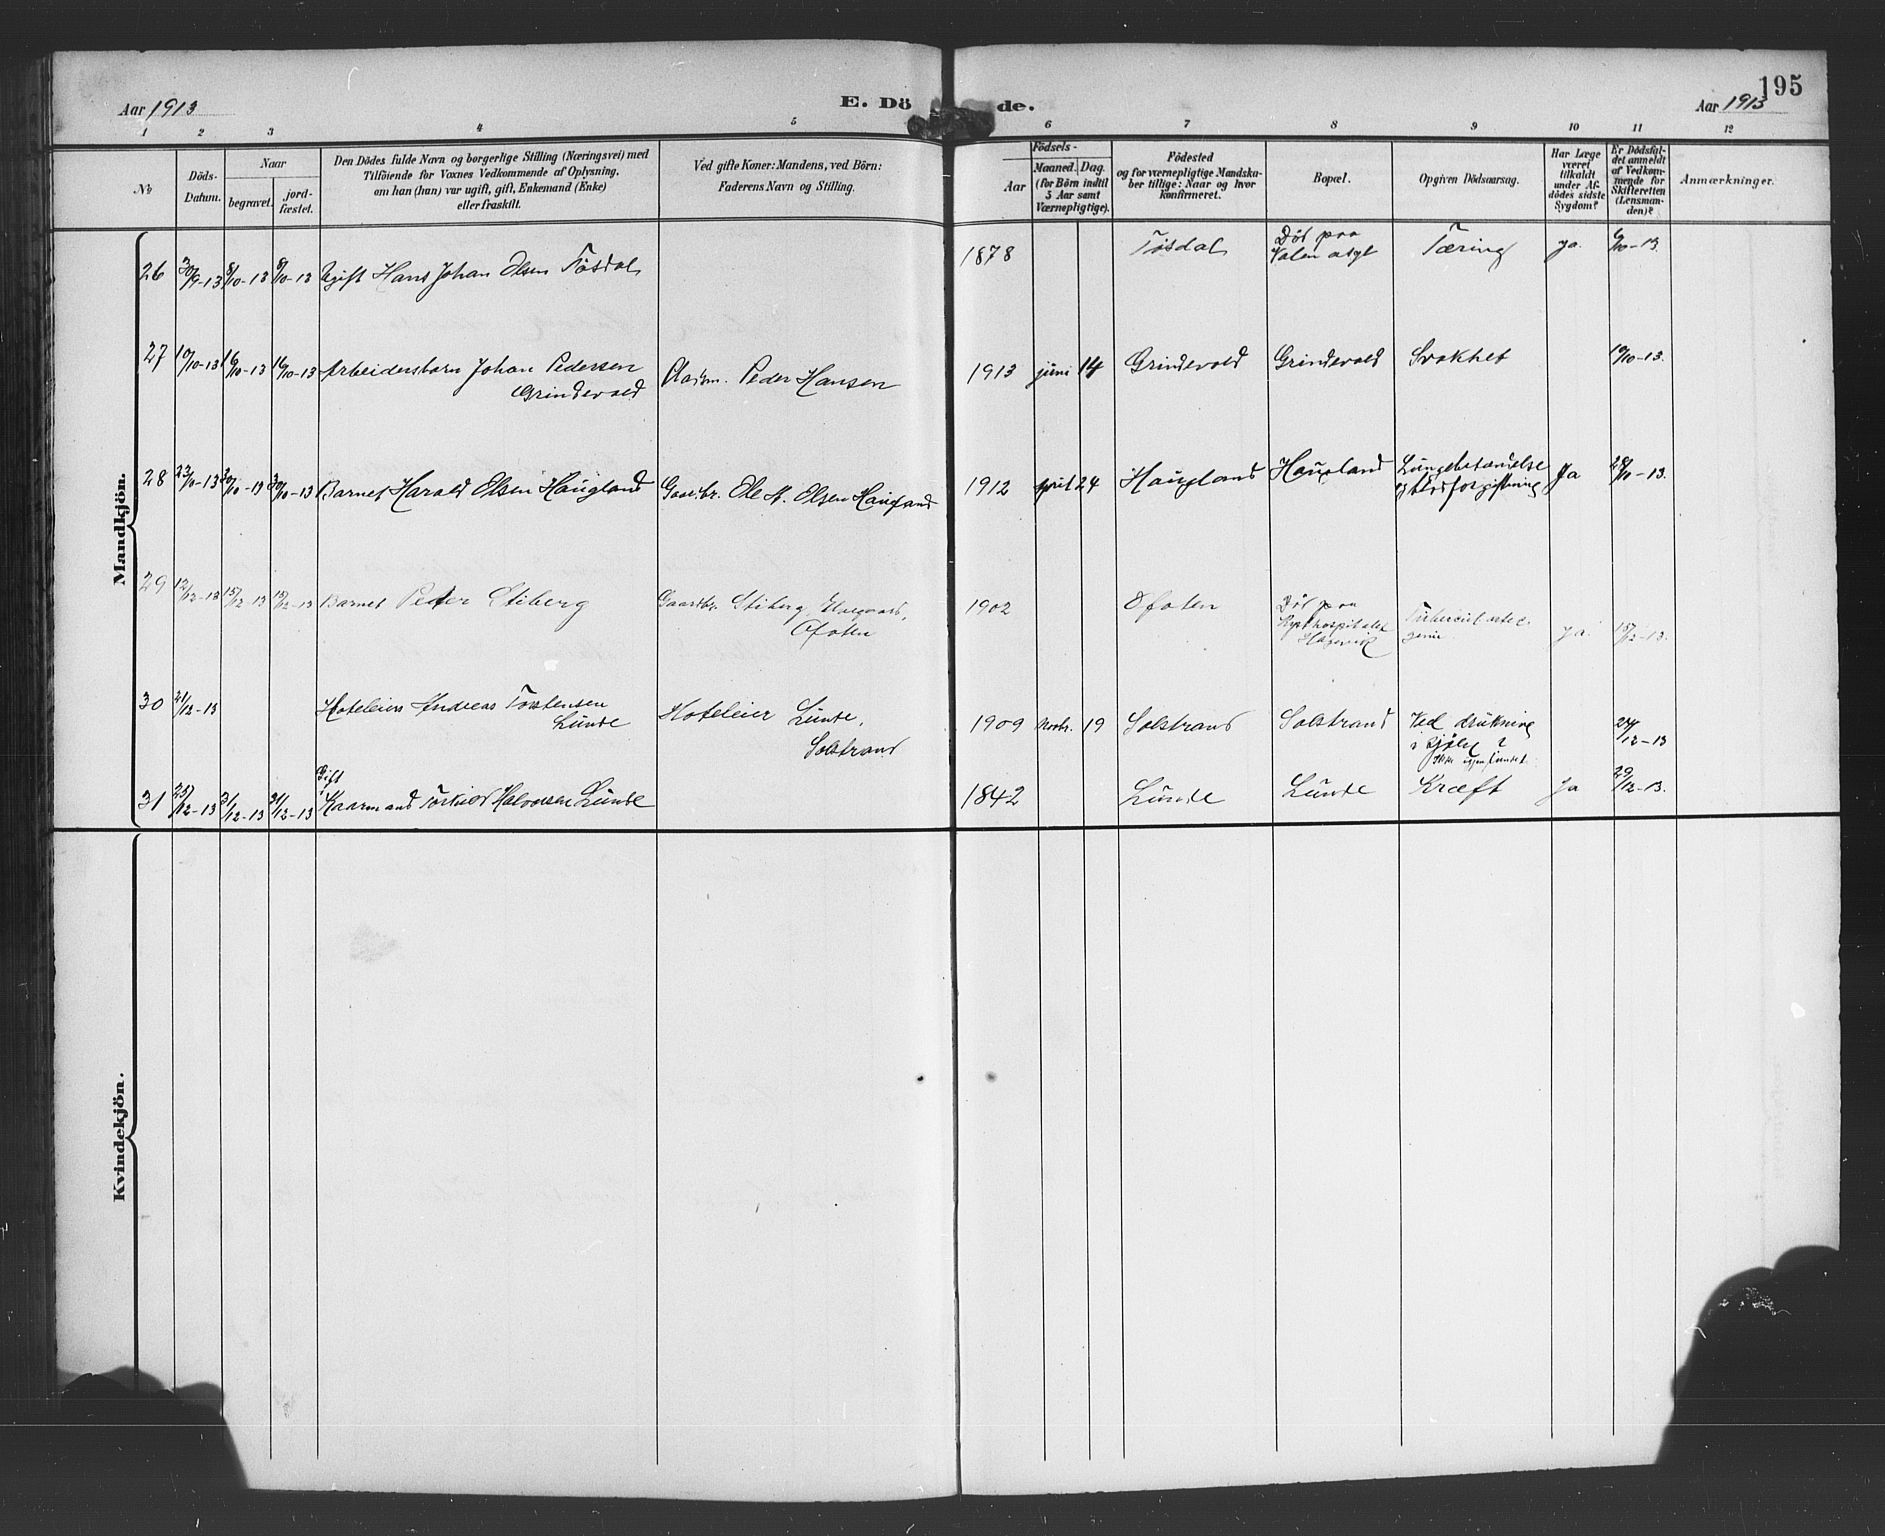 195
Aar 1913 E. Dö de. Aar 1913
1 2 3 4 5 6 7 8 9 10 11 12
No
Döds-
Datum.
Naar
begravet.
jord-
fæstet.
Den Dödes fulde Navn og borgerlige Stilling (Næringsvei) med
Tilföiende for Voxnes Vedkommende af Oplysning,
om han (hun) var ugift, gift, Enkemand (Enke)
eller fraskilt.
Ved gifte Koner: Mandens, ved Börn:
Faderens Navn og Stilling.
Födsels-
Aar
Maaned. Dag.
(for Börn indtil
5 Aar samt
Værnepligtige).
Födested
og for værnepligtige Mandska-
ber tillige: Naar og hvor
konfirmeret.
Bopæl.
Opgiven Dödsaarsag.
Har Læge
været
tilkaldt
under Af-
dödes sidste
Sygdom?
Er Dödsfal-
det anmeldt
af Vedkom-
mende for
Skifteretten
(Lensman-
den)?
Anmærkninger.
Mandkjön.
26 30/9-13 8/10-13 8/10-13 Ugift Hans Johan Olsen Tøsdal 1878 Tøsdal Død paa
Valen asyl Tæring ja. 6/10-13.
27 10/10-13 16/10-13 16/10-13 Arbeidersbarn Johan Pedersen
Grindevold Pladsm. Peder Hansen 1913 juni 14 Grindevold Grindevold Svakhet 19/10-13.
28 23/10-13 30/10-13 30/10-13 Barnet Harald Olsen Haugland Gaardbr. Ole A. Olsen Haugland 1912 april 24 Haugland Haugland Lungebetændelse
og blodforgiftning Ja 28/10-13.
29 12/12-13 15/12-13 15/12-13 Barnet Peder Stiberg Gaardbr. Stiberg,
Ofoten 1902 Ofoten Død paa
Kysthospitalet
Hagevik ja. 15/12-13.
30 21/12-13 Hoteleiers Andreas Torstensen
Lunde Hoteleier Lunde,
Solstrand 1909 Novbr. 19 Solstrand Solstrand Ved drukning
i Sjøen ?
Ikke igjenfundet. 24/12-13
31 25/12-13 31/12-13 31/12-13 Gift
Kaarmand Torkild Halvorsen Lunde 1842 Lunde Lunde Kræft Ja 29/12-13.
Kvindekjön.